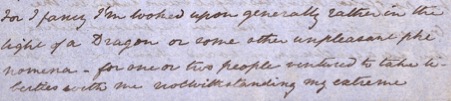 for I fancy I'm looked upon generally rather in the
light of a Dragon or some other unpleasant phe
nomena - for one or two people ventured to take li-
berties with me notwithstanding my extreme